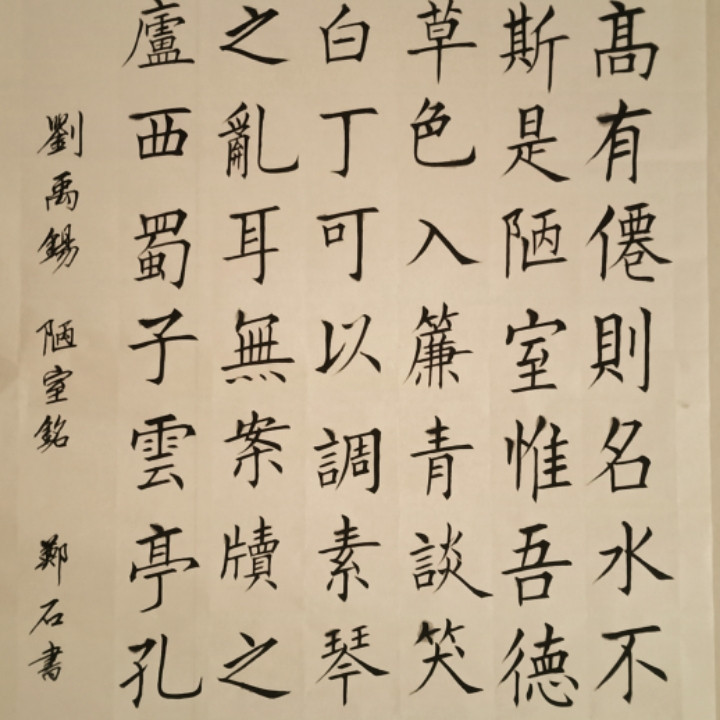 高有僊則名水不
斯是陋室惟吾德
草色入簾青談笑
白丁可以調素琴
之亂耳無案牘之
廬西蜀子雲亭孔
劉禹錫 陋室銘 鄭石書